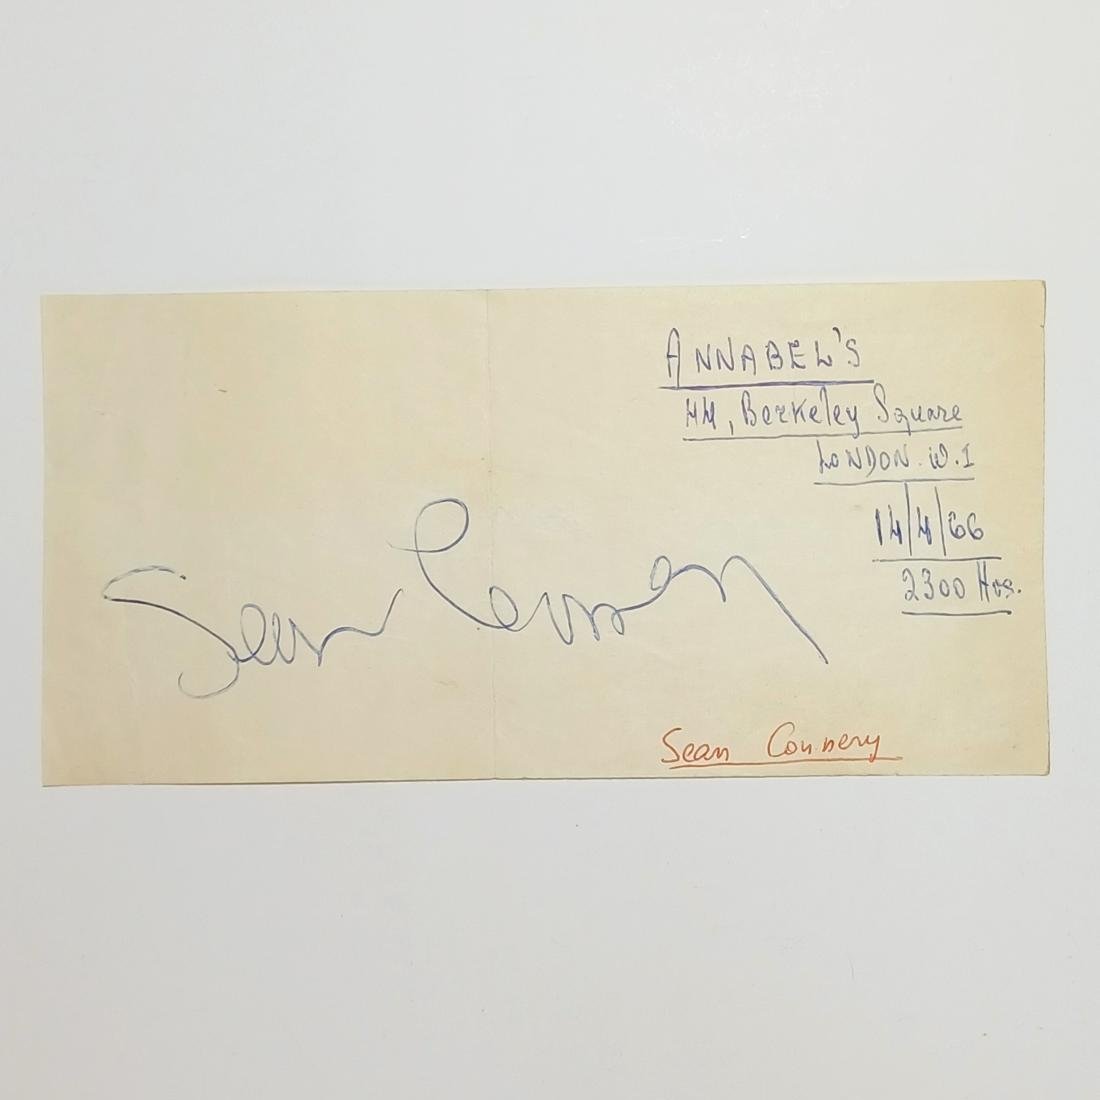 ANNABEL'S
44, Berkeley Square
LONDON. W.I
14/4/66
2300 Hrs.
Sean Connery
Sean Connery